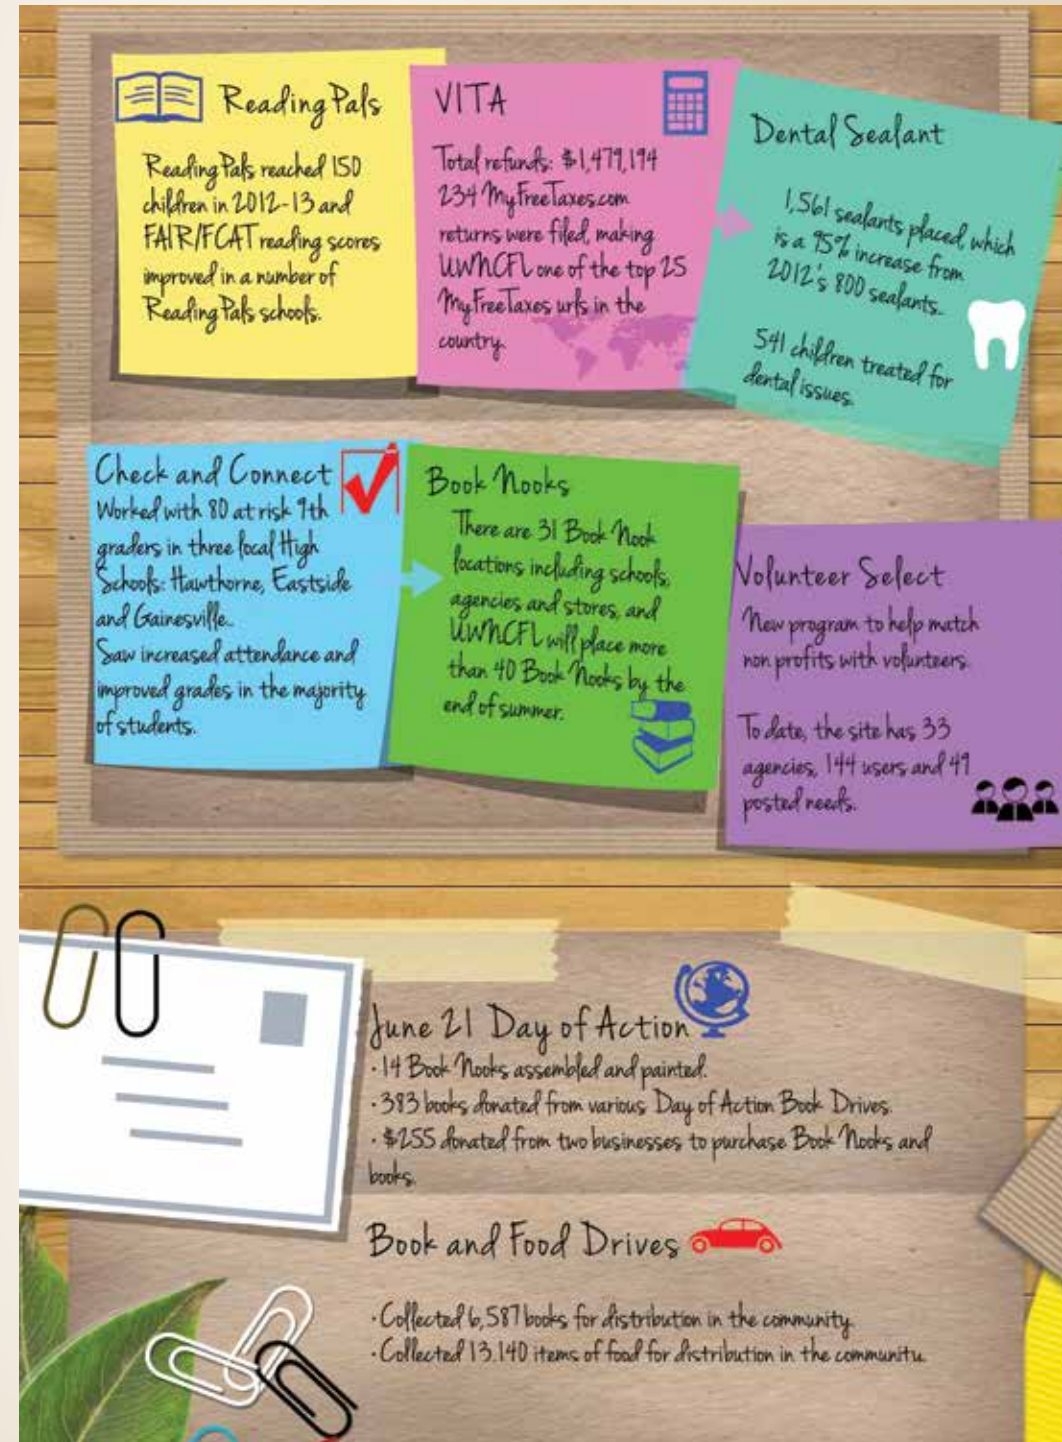 Reading Pals
Reading Pals reached 150
children in 2012-13 and
FAIR/FCAT reading scores
improved in a number of
Reading Pals schools.
VITA
Total refunds: $1,479,194
234 MyFreeTaxes.com
returns were filed, making
UWNCFL one of the top 25
MyFreeTaxes urls in the
country.
Dental Sealant
1,561 sealants placed, which
is a 95% increase from
2012's 800 sealants.
541 children treated for
dental issues.
Check and Connect
Worked with 80 at risk 9th
graders in three local High
Schools: Hawthorne, Eastside
and Gainesville..
Saw increased attendance and
improved grades in the majority
of students.
Book Nooks
There are 31 Book Nook
locations including schools,
agencies and stores, and
UWNCFL will place more
than 40 Book Nooks by the
end of summer.
Volunteer Select
New program to help match
non profits with volunteers.
To date, the site has 33
agencies, 144 users and 49
posted needs.
June 21 Day of Action
· 14 Book Nooks assembled and painted.
· 383 books donated from various Day of Action Book Drives.
· $255 donated from two businesses to purchase Book Nooks and
books.
Book and Food Drives
· Collected 6,587 books for distribution in the community.
· Collected 13,140 items of food for distribution in the community.